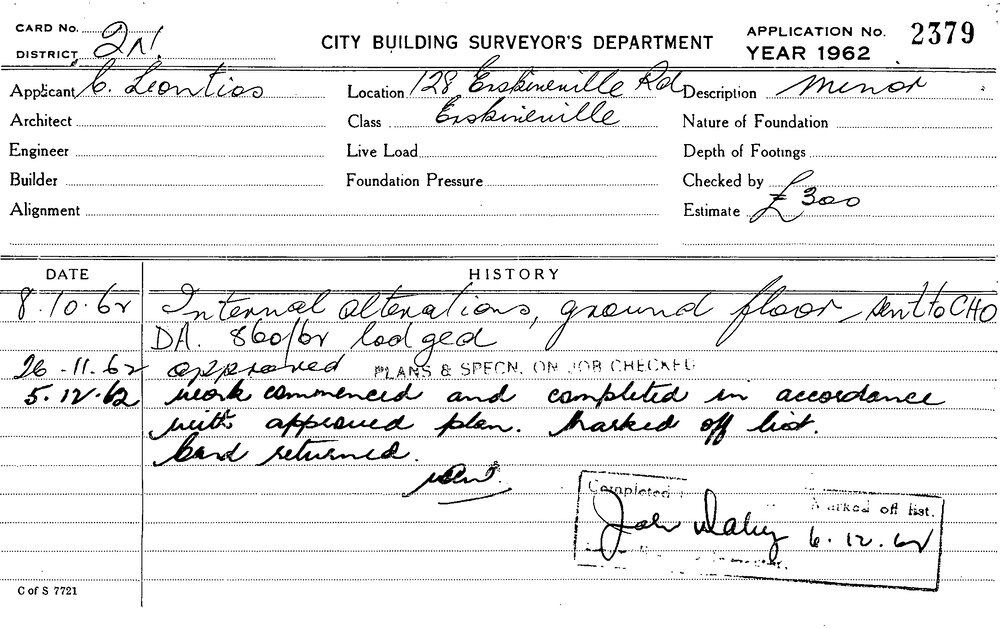 CARD No.
DISTRICT 2N
CITY BUILDING SURVEYOR'S DEPARTMENT
APPLICATION No. 2379
YEAR 1962
Applicant C. Leontios
Location 128 Erskineville Rd
Description Minor
Architect
Class Erskineville
Nature of Foundation
Engineer
Live Load
Depth of Footings
Builder
Foundation Pressure
Checked by
Alignment
Estimate £300
DATE HISTORY
8.10.62 Internal alterations, ground floor, sent to CHO
DA. 860/62 lodged
26.11.62 approved PLANS & SPECN. ON JOB CHECKED
5.12.62 work commenced and completed in accordance
with approved plan. Marked off list.
Card returned.
Completed
Marked off list.
6.12.62
C of S 7721